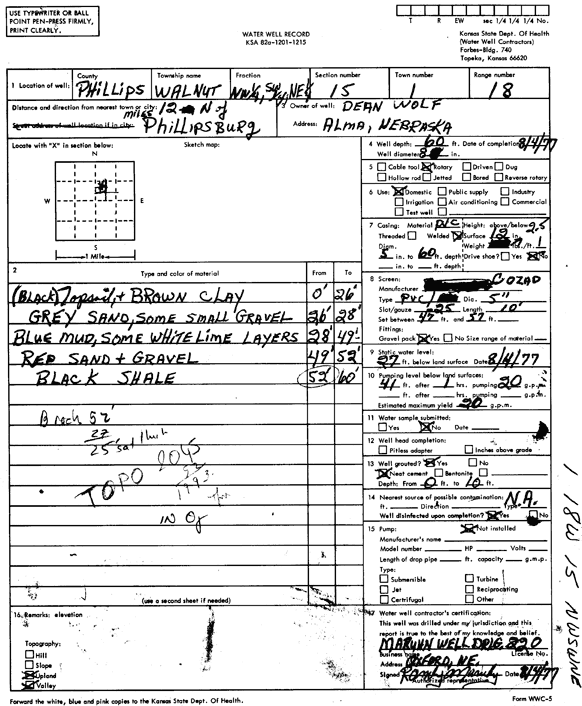 USE TYPEWRITER OR BALL
POINT PEN-PRESS FIRMLY,
PRINT CLEARLY.
WATER WELL RECORD
KSA 82a-1201-1215
T R EW sec 1/4 1/4 1/4 No.
Kansas State Dept. Of Health
(Water Well Contractors)
Forbes-Bldg. 740
Topeka, Kansas 66620
1 Location of well: County Township name Fraction Section number Town number Range number
PHILLIPS WALNUT NW¼ SW¼ NE¼ 15 1 18
Distance and direction from nearest town or city: 12 miles N of
Street address of well location if in city: PHILLIPSBURG
3 Owner of well: DEAN WOLF
Address: ALMA, NEBRASKA
Locate with "X" in section below: Sketch map:
N
W E
S
1 Mile
4 Well depth: 60 ft. Date of completion 8/4/77
Well diameter 8 in.
5 Cable tool Rotary Driven Dug
Hollow rod Jetted Bored Reverse rotary
6 Use: Domestic Public supply Industry
Irrigation Air conditioning Commercial
Test well
7 Casing: Material PVC Height: above/below 2.5
Threaded Welded Surface 12 in.
Diam. Weight lbs./ft. 1
5 in. to 60 ft. depth Drive shoe? Yes No
in. to ft. depth
2 Type and color of material From To
(BLACK) Topsoil, + BROWN CLAY 0' 26'
GREY SAND, SOME SMALL GRAVEL 26' 28'
BLUE MUD, SOME WHITE LIME LAYERS 28' 49'
RED SAND + GRAVEL 49' 52'
BLACK SHALE 52' 60'
8 Screen:
Manufacturer COZAD
Type PVC Dia. 5"
Slot/gauze .25 Length 10'
Set between 47 ft. and 57 ft.
Fittings:
Gravel pack Yes No Size range of material
9 Static water level:
27 ft. below land surface Date 8/4/77
10 Pumping level below land surfaces:
41 ft. after 1 hrs. pumping 20 g.p.m.
ft. after hrs. pumping g.p.m.
Estimated maximum yield 20 g.p.m.
B rock 52'
27
25' sat thick
TOPO 2045
52
1993
IN
11 Water sample submitted:
Yes No Date
12 Well head completion:
Pitless adapter Inches above grade
13 Well grouted? Yes No
Neat cement Bentonite
Depth: From 0 ft. to 10 ft.
14 Nearest source of possible contamination: N.A.
ft. Direction Type
Well disinfected upon completion? Yes No
15 Pump: Not installed
Manufacturer's name
Model number HP Volts
Length of drop pipe ft. capacity g.m.p.
Type:
Submersible Turbine
Jet Reciprocating
Certrifugal Other
(use a second sheet if needed)
16 Remarks: elevation
Topography:
Hill
Slope
Upland
Valley
17 Water well contractor's certification:
This well was drilled under my jurisdiction and this
report is true to the best of my knowledge and belief.
MARUHN WELL DRLG. 220
Business name License No.
Address OXFORD, NE.
Signed Date 8/4/77
Authorized representative
1 18W 15 NWSWNE
Forward the white, blue and pink copies to the Kansas State Dept. Of Health.
Form WWC-5